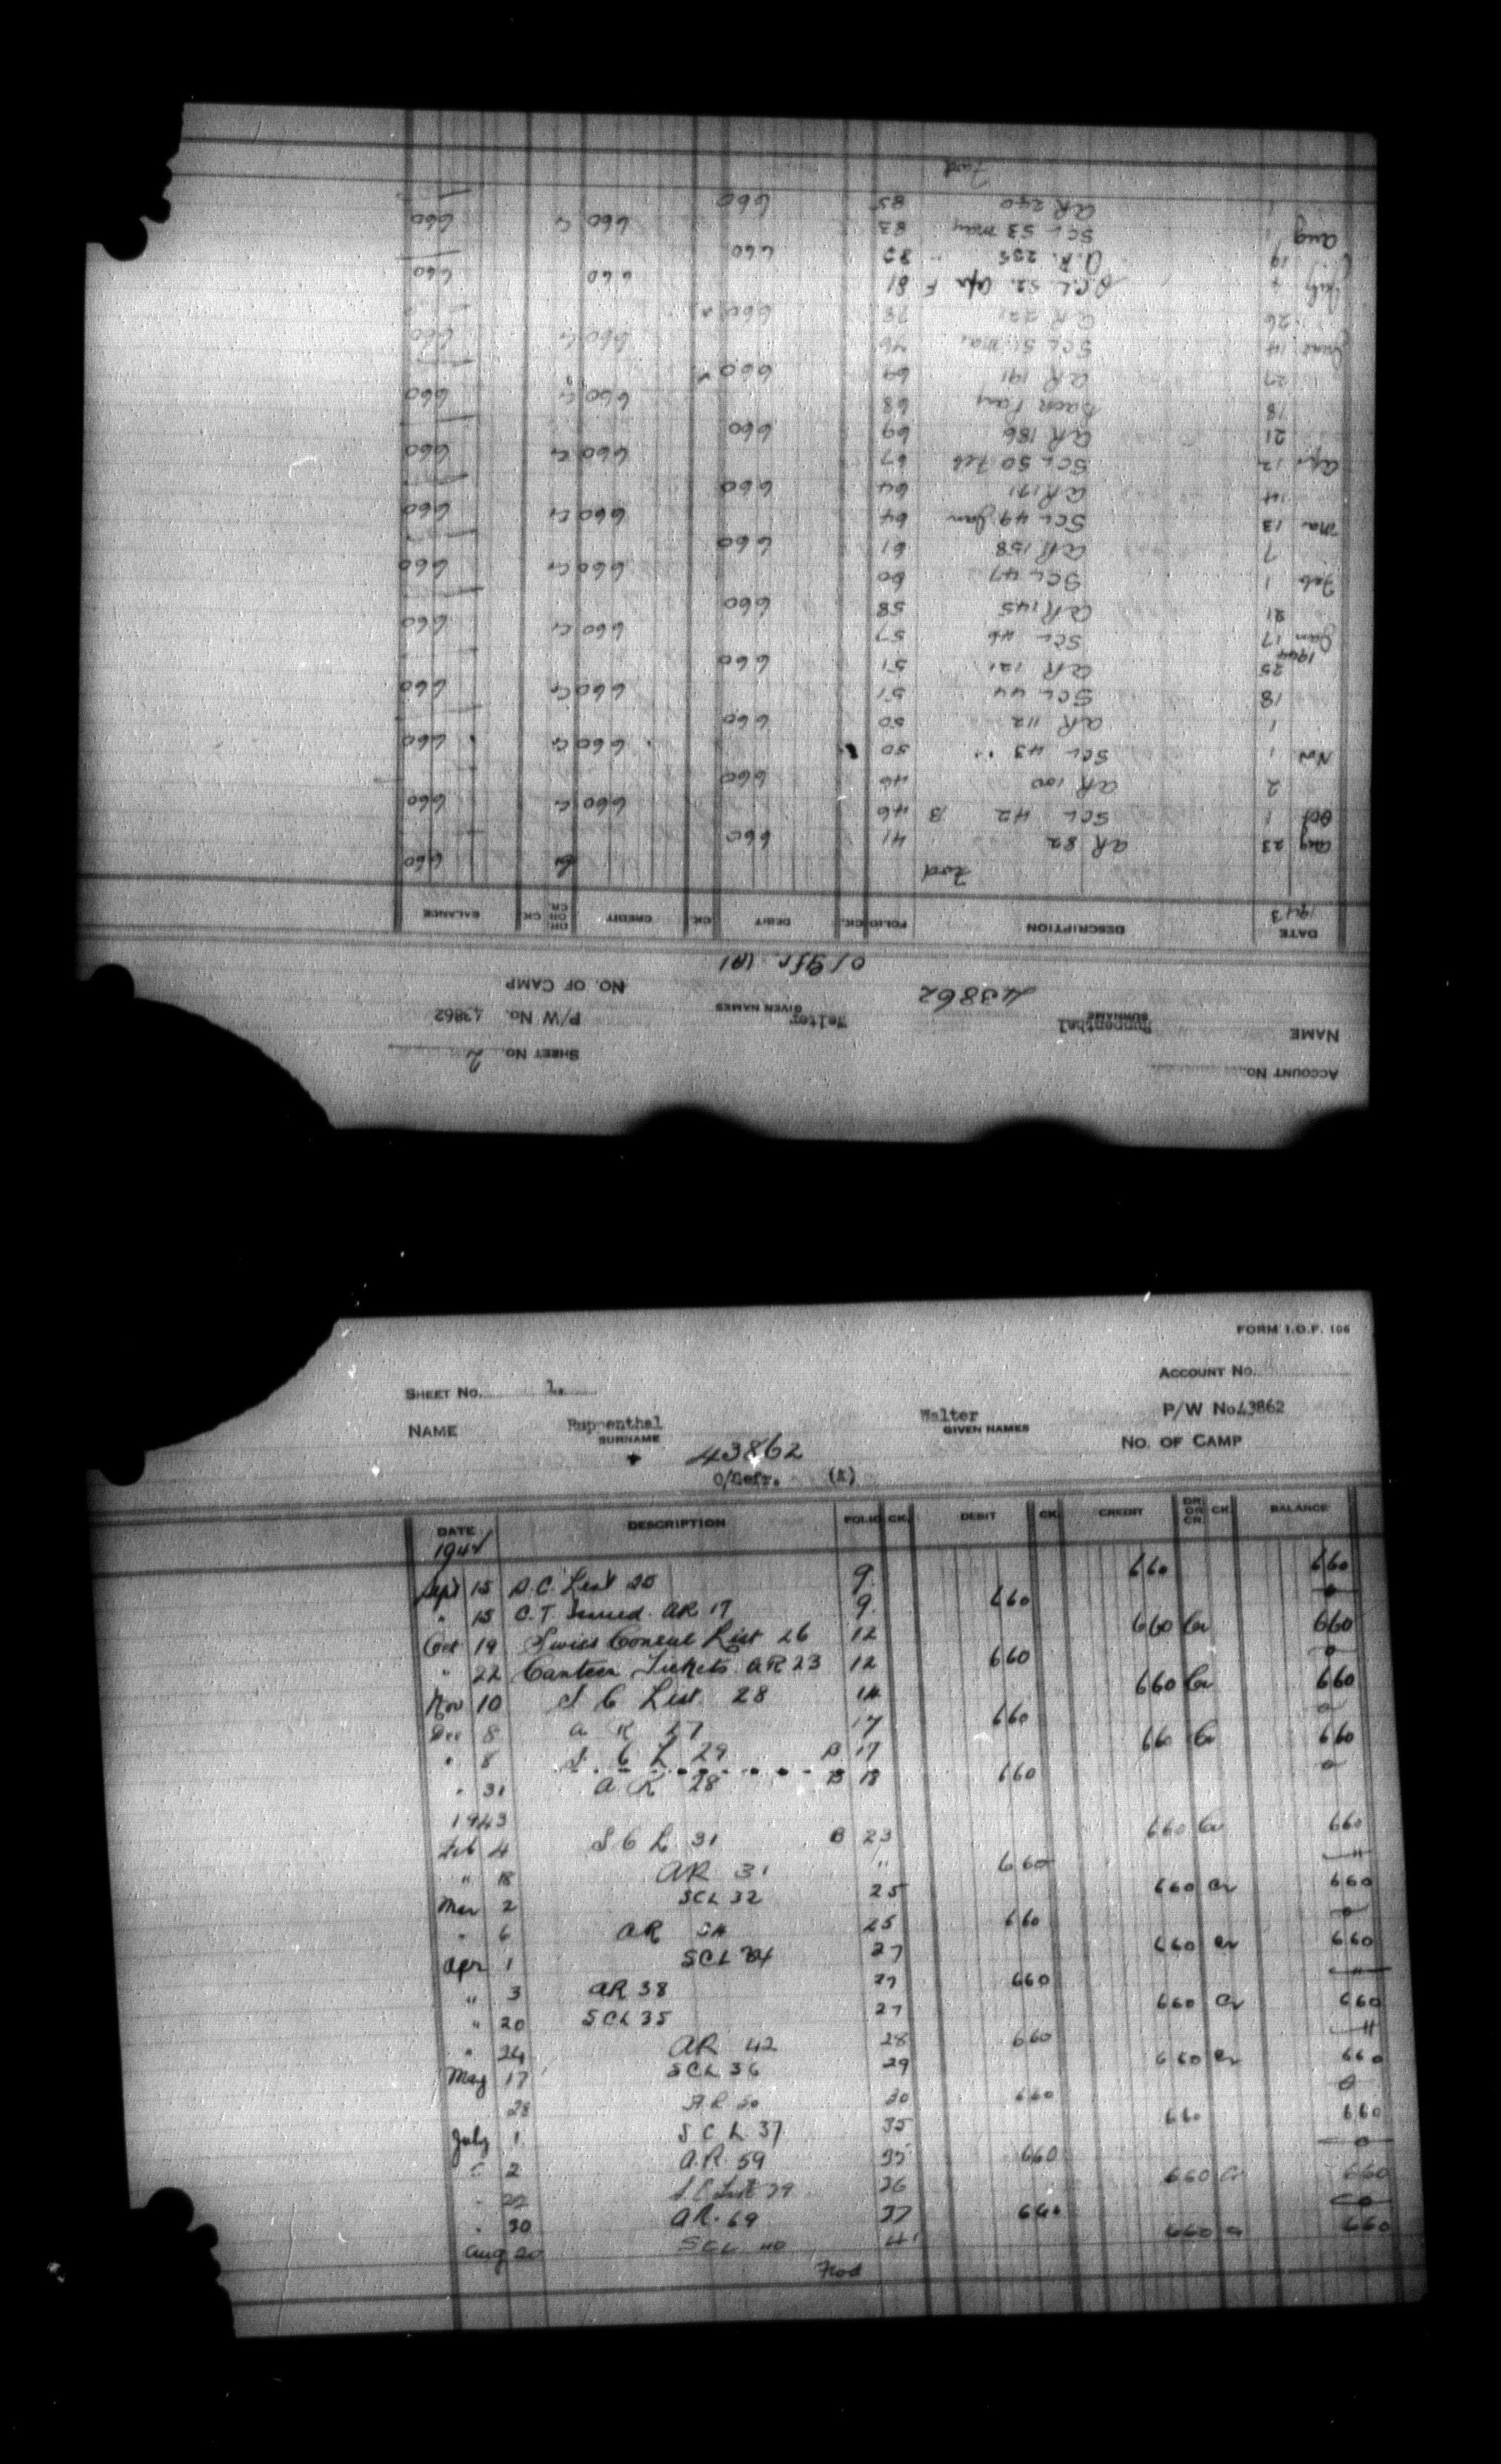 FORM I.O.F. 106
SHEET No. 1. ACCOUNT No.
NAME Ruppenthal SURNAME Walter GIVEN NAMES P/W No. 43862
43862 NO. OF CAMP
O/Gefr. (A)
DATE DESCRIPTION FOLIO CK. DEBIT CK. CREDIT DR. OR CR. CK. BALANCE
1942
Sept 15 S.C. List 25 9 660 660
" 15 C.T. Issued. AR 17 9 660 0
Oct 19 Swiss Consul List 26 12 660 Cr 660
" 22 Canteen Tickets AR 23 12 660 0
Nov 10 S C List 28 14 660 Cr 660
Dec 8 A R 27 17 660 0
" 8 S. C L 29 B 17 660 Cr 660
" 31 A R 28 B 18 660 0
1943
Feb 4 S C L 31 B 23 660 Cr 660
" 18 AR 31 " 660
Mar 2 SCL 32 25 660 Cr 660
" 6 AR 25 660 0
Apr 1 SCL 34 27 660 Cr 660
" 3 AR 38 27 660
" 20 SCL 35 27 660 Cr 660
" 24 AR 42 28 660
May 17 SCL 36 29 660 Cr 660
28 AR 50 30 660 0
July 1 S C L 37 35 660 660
" 2 A.R. 59 35 660 0
" 22 S.C List 39 36 660 Cr 660
" 30 AR. 69 37 660 0
Aug 20 SCL 40 41 660 Cr 660
Fwd
ACCOUNT No. SHEET No. 2
NAME Ruppenthal SURNAME Walter GIVEN NAMES P/W No. 43862
43862 NO. OF CAMP
O/Gfr. (A)
DATE DESCRIPTION FOLIO CK. DEBIT CK. CREDIT DR. OR CR. CK. BALANCE
1943
Fwd Cr 660
Aug 23 AR 82 41 660
Oct 1 SCL 42 B 46 660 Cr 660
2 AR 100 46 660
Nov 1 SCL 43 50 660 Cr 660
1 AR 112 50 660
18 SCL 44 51 660 Cr 660
25 AR 121 51 660
1944
Jan 17 SCL 46 57 660 Cr 660
21 AR 145 58 660
Feb 1 SCL 47 60 660 Cr 660
7 AR 158 61 660
Mar 13 SCL 49 Jan 64 660 Cr 660
14 AR 171 64 660
Apr 12 SCL 50 Feb 67 660 Cr 660
21 AR 186 69 660
18 Back Pay 68 660 Cr 660
27 AR 191 69 660
June 14 SCL 51 Mar 76 660 Cr 660
26 AR 221 78 660
July 7 S.C.L 52. Apr F 81 660 660
19 A.R. 235 660
Aug 1 SCL 53 May 83 660 Cr 660
1 AR 240 85 660
Fwd